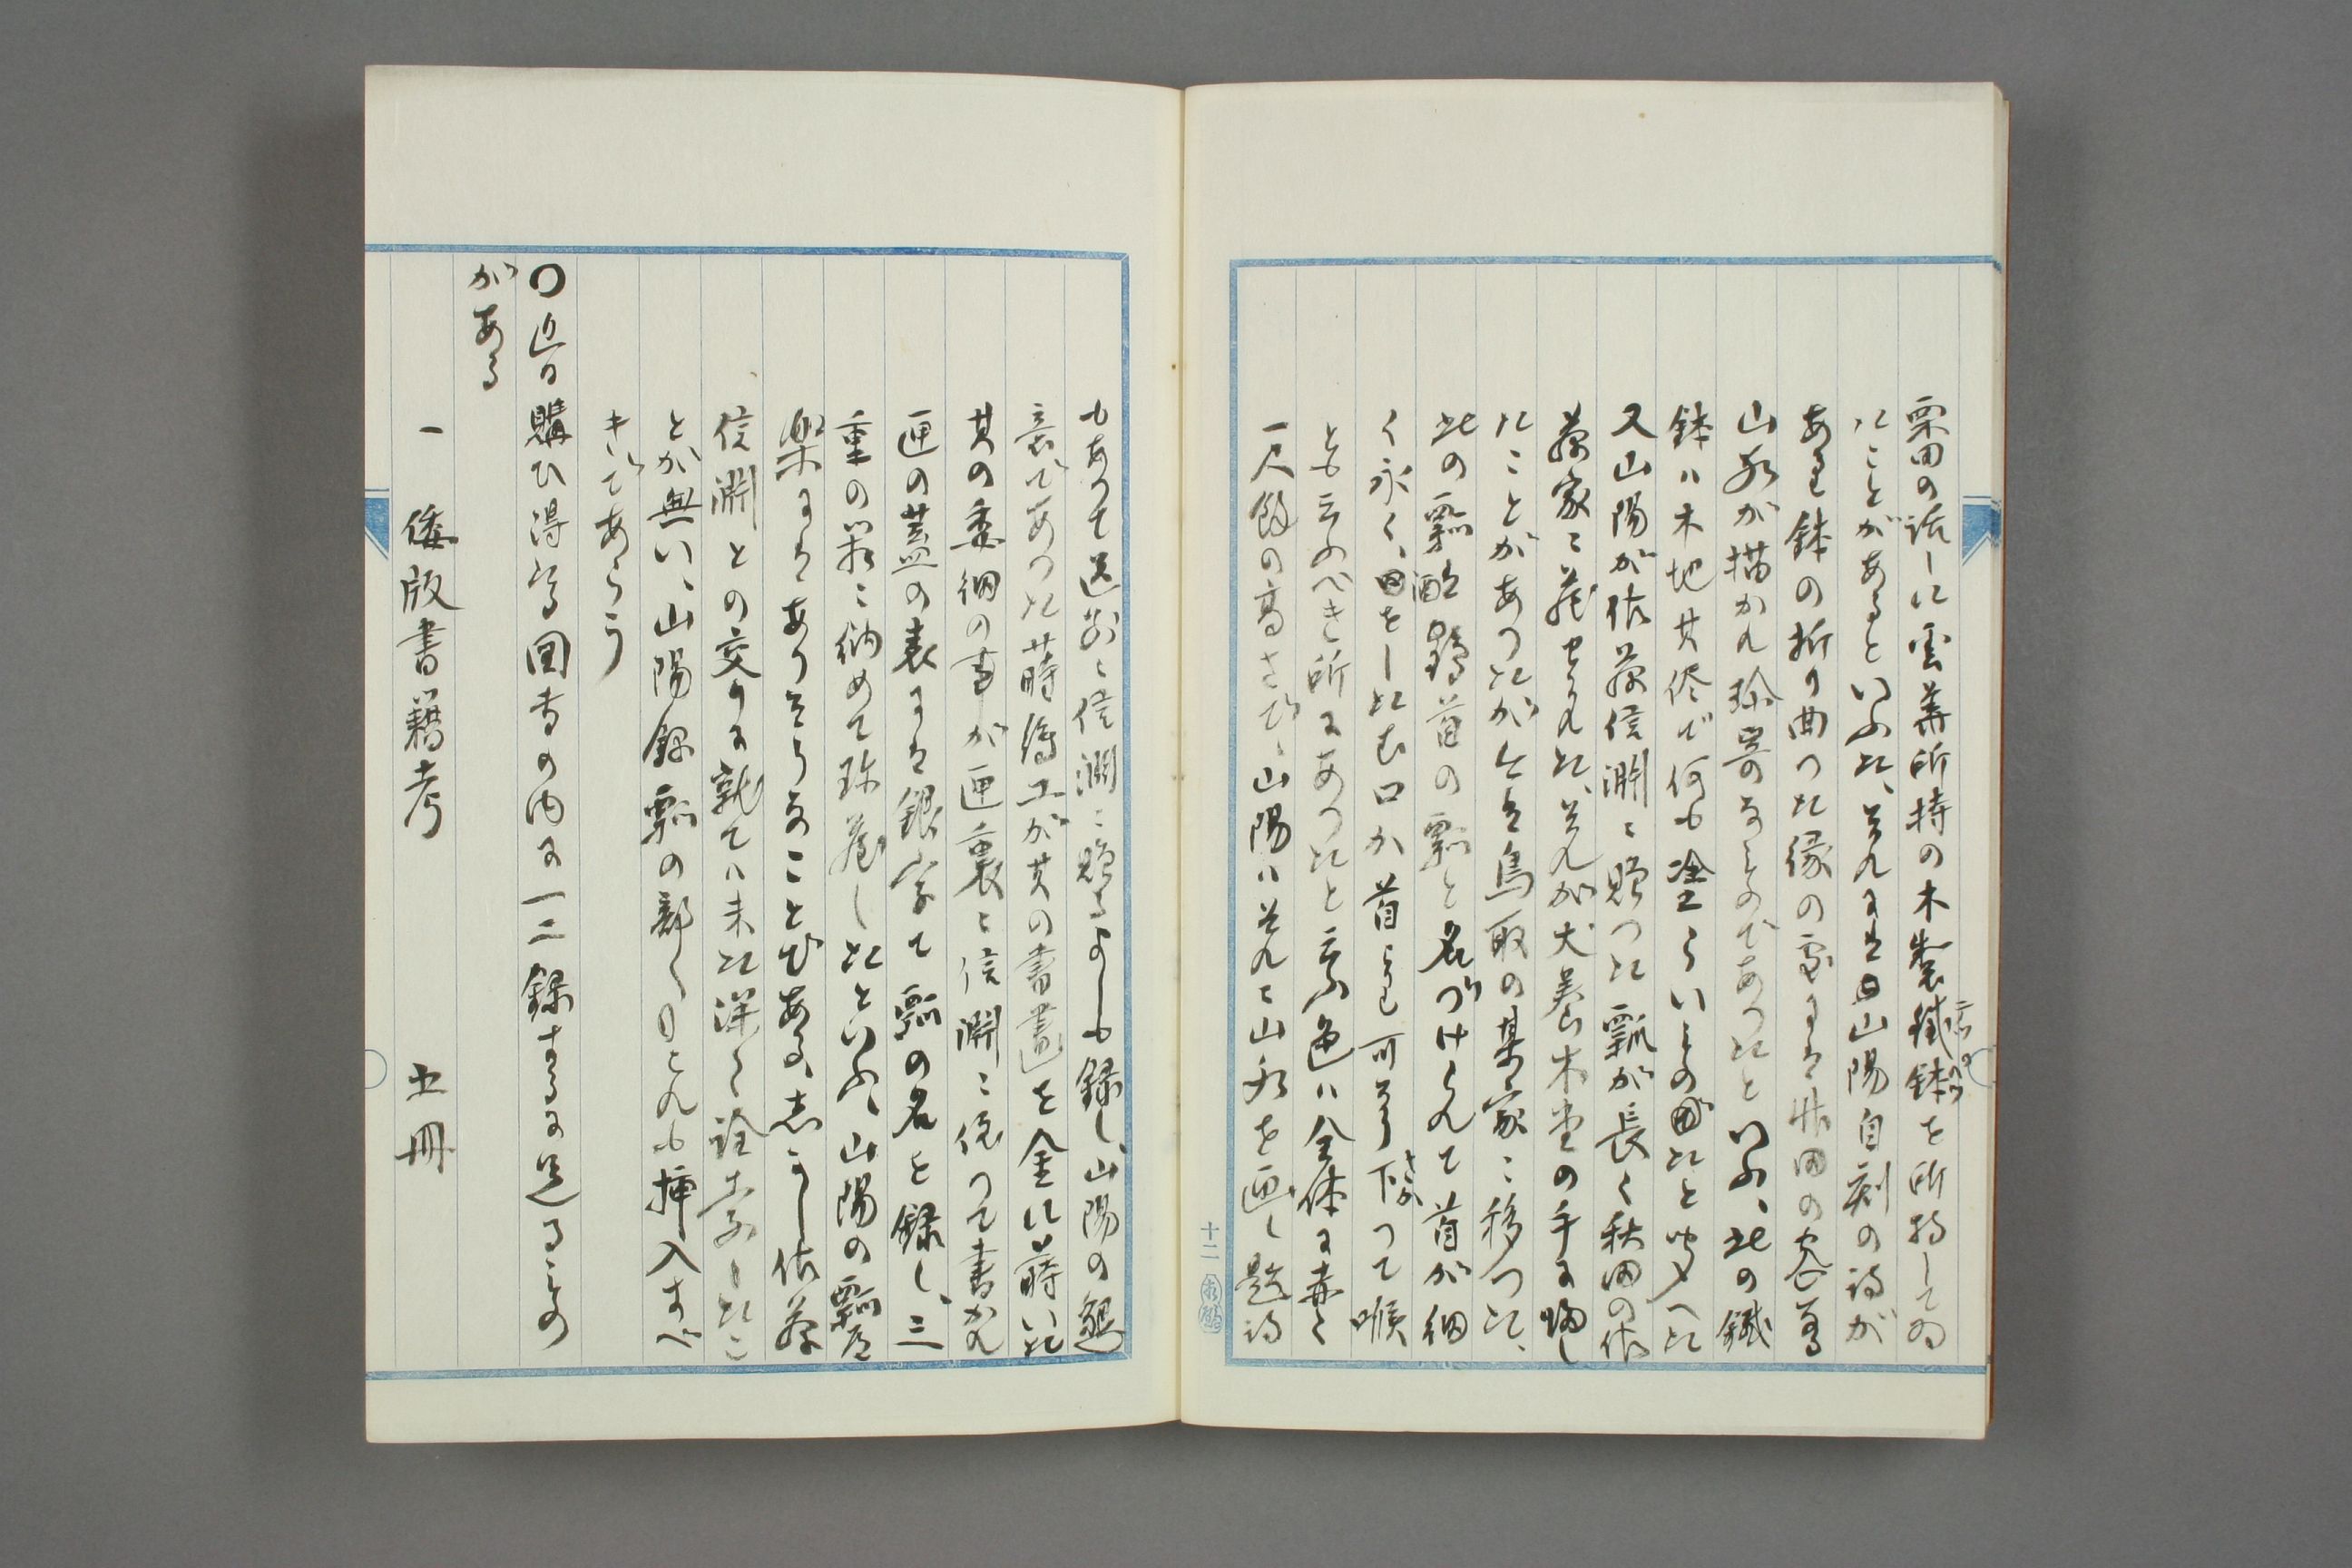 栗田の話しに雲華所持の木製鐵鉢を所持してゐ
たことがあるといふた、それには山陽自刻の詩が
あり鉢の折り曲つた縁の処には竹田の容䓁
山水が描かれ珍らしきものであつたといふ、此の鐵
鉢ハ木地其侭で何も塗らいものであつたと聞へた
又山陽が佐藤信淵に贈つた瓢が長く秋田の佐
藤家に藏せられた、それが犬養木堂の手に帰し
たことがあつたが今は鳥取の某家に移つた、
此の瓢酷鶴首の瓢と名づけられて首が細
く永く、曲をした口が首より下つて喉
とも云ふべき所にあつたと云ふ色ハ全体に赤く
一尺餘の高さで、山陽ハそれに山水を画し題詩
十二
もあつて送別に信淵に贈るよしも録し、山陽の
意であつた蒔繪工が其の書畫を金に蒔いた
其の委細の事が匣裏に信淵に依つて書かれ
匣の蓋の表には銀字で瓢の名を録し、三
重の箱に納めて珍蔵したといふ、山陽の瓢道
楽にはありそうなことである、しかし佐藤
信淵との交りに就てハ未た深く詮索したこ
とが無い、山陽録瓢の部にこれも挿入すべ
きであらう
〇近日購ひ得たる図書の内に一二録するに足るもの
がある
一 倭版書籍考 五冊